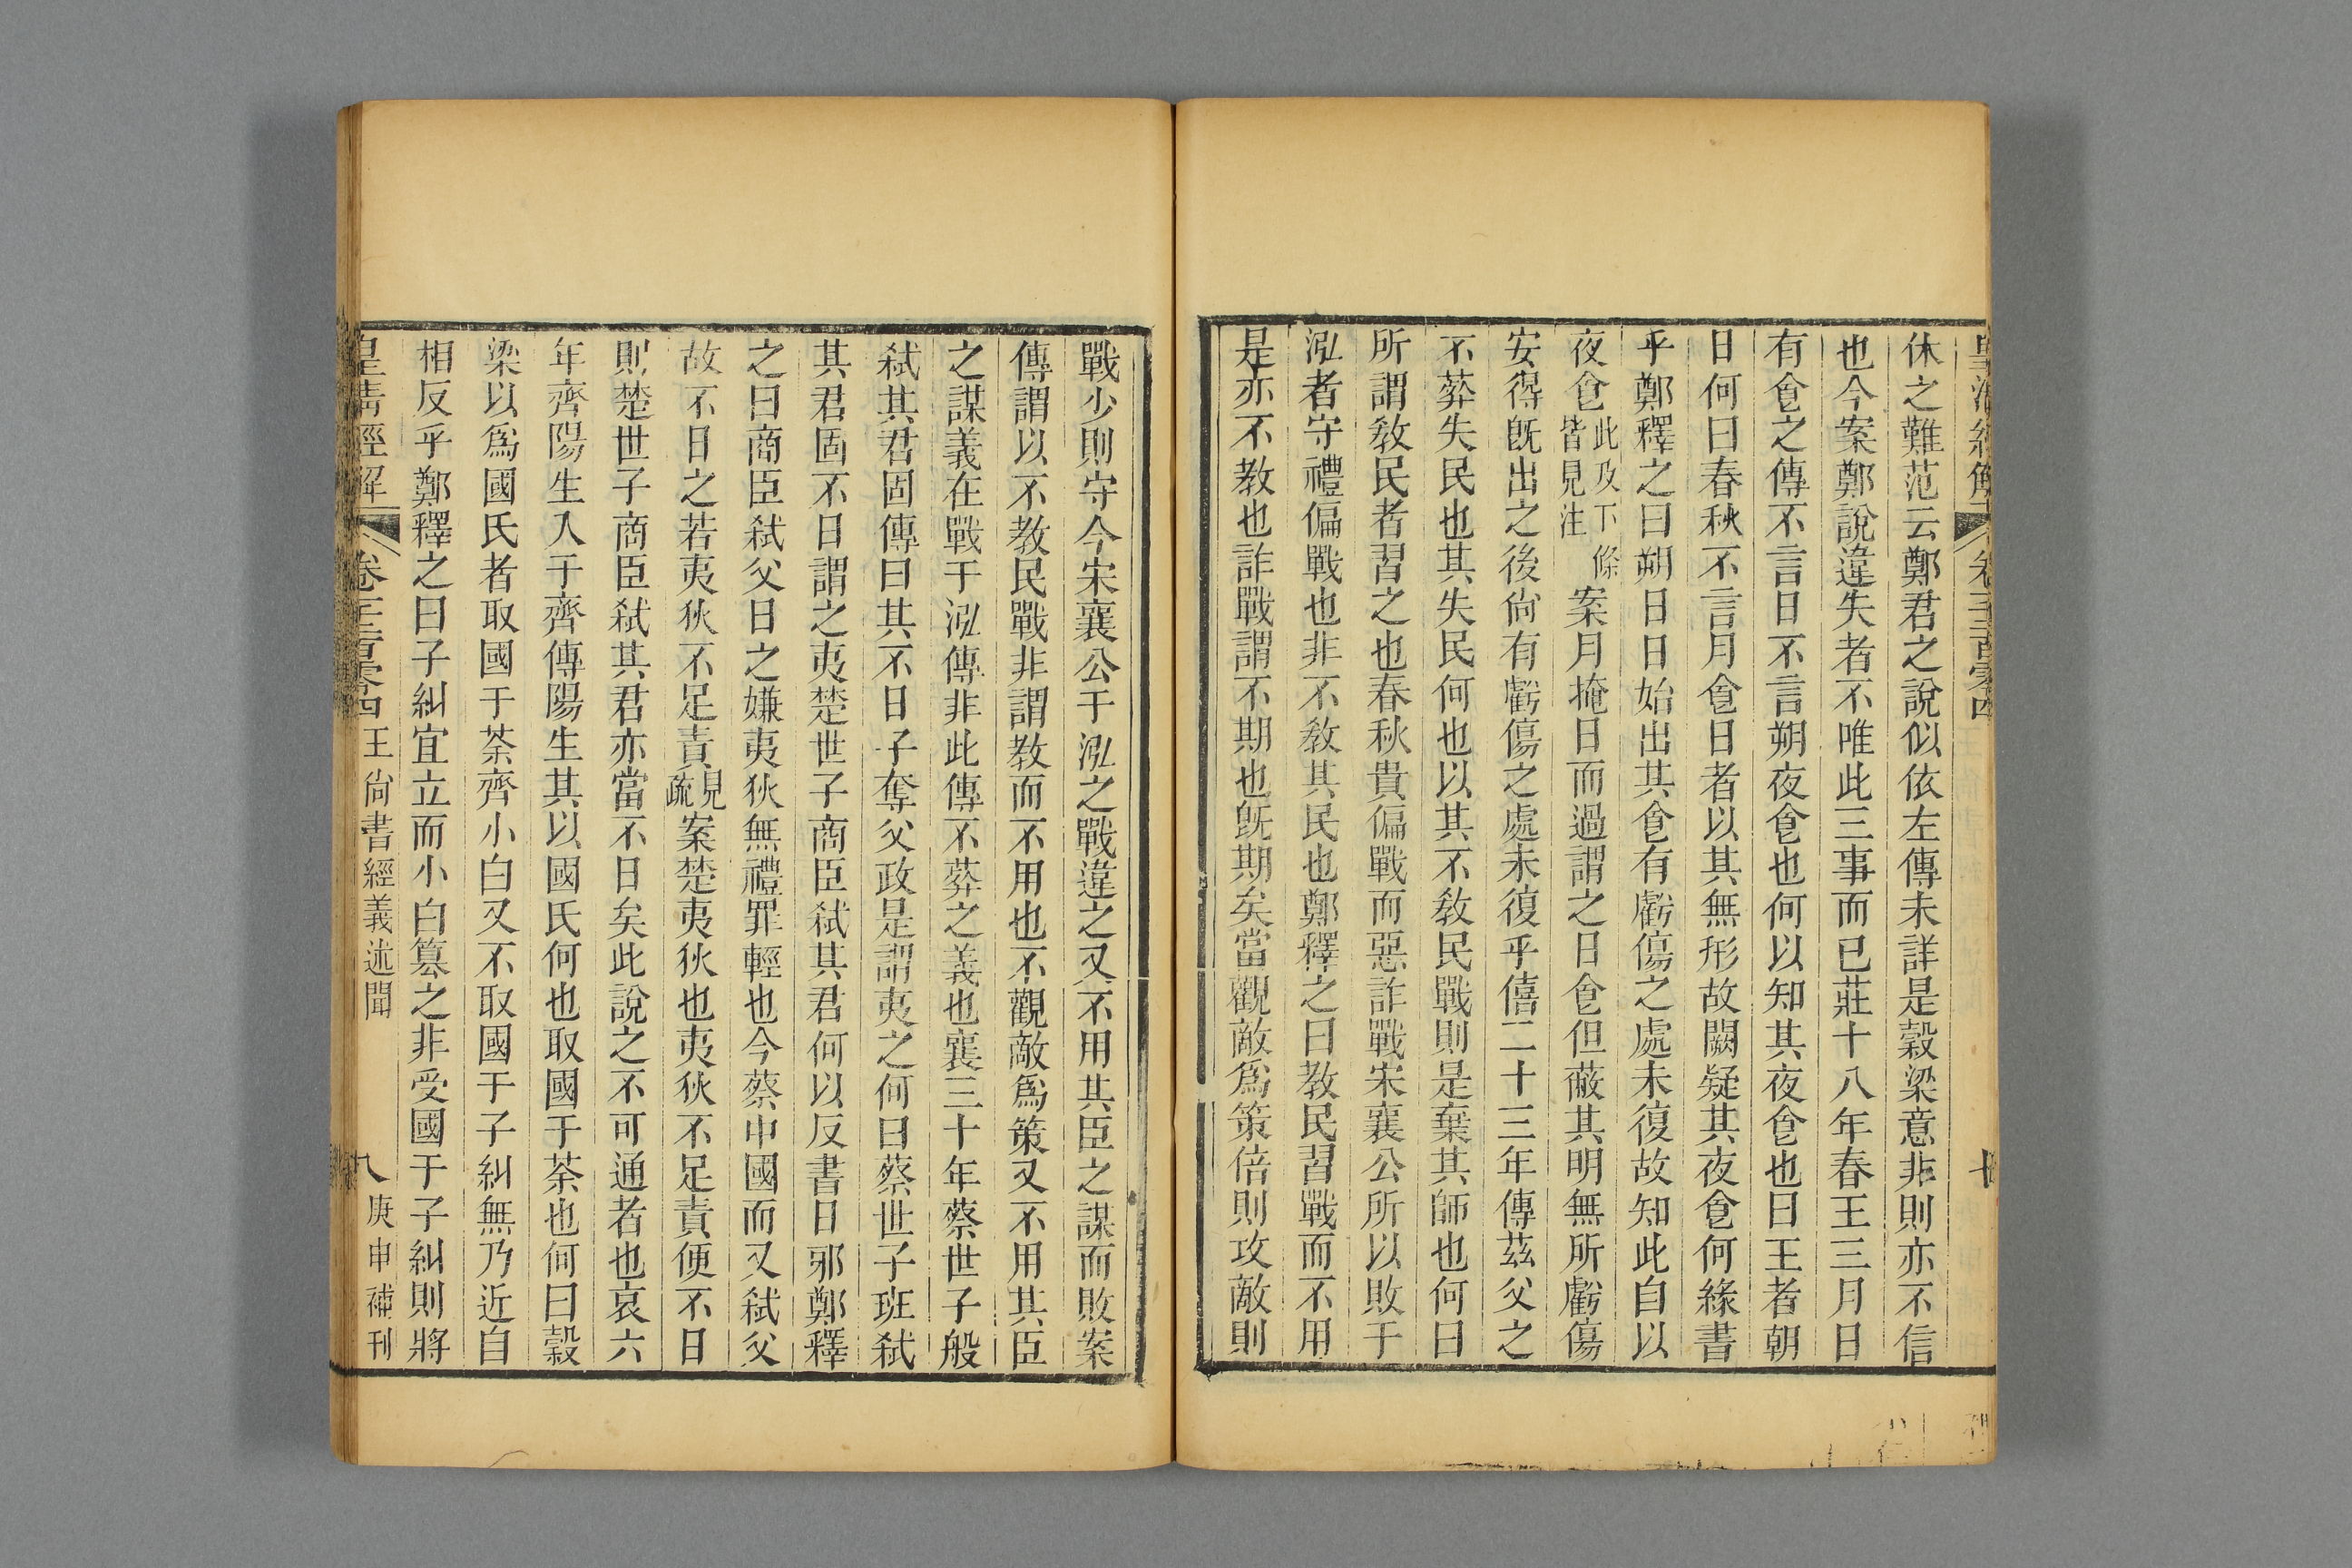 休之難范云鄭君之說似依左傳未詳是穀梁意非則亦不信
也今案鄭說違失者不唯此三事而已莊十八年春王三月日
有食之傳不言日不言朔夜食也何以知其夜食也曰王者朝
日何曰春秋不言月食日者以其無形故闕疑其夜食何緣書
乎鄭釋之曰朔日日始出其食有虧傷之處未復故知此自以
夜食此及下條皆見注案月掩日而過謂之日食但蔽其明無所虧傷
安得旣出之後尙有虧傷之處未復乎僖二十三年傳茲父之
不葬失民也其失民何也以其不敎民戰則是棄其師也何曰
所謂敎民者習之也春秋貴偏戰而惡詐戰宋襄公所以敗于
泓者守禮偏戰也非不敎其民也鄭釋之曰教民習戰而不用
是亦不教也詐戰謂不期也旣期矣當觀敵爲策倍則攻敵則
戰少則守今宋襄公于泓之戰違之又不用其臣之謀而敗案
傳謂以不教民戰非謂教而不用也不觀敵爲策又不用其臣
之謀義在戰于泓傳非此傳不葬之義也襄三十年蔡世子般
弑其君固傳曰其不日子奪父政是謂夷之何曰蔡世子班弑
其君固不日謂之夷楚世子商臣弑其君何以反書日邪鄭釋
之曰商臣弑父日之嫌夷狄無禮罪輕也今蔡中國而又弑父
故不日之若夷狄不足責見疏案楚夷狄也夷狄不足責便不日
則楚世子商臣弑其君亦當不日矣此說之不可通者也哀六
年齊陽生入于齊傳陽生其以國氏何也取國于荼也何曰穀
梁以爲國氏者取國于荼齊小白又不取國于子糾無乃近自
相反乎鄭釋之曰子糾宜立而小白篡之非受國于子糾則將
皇清經解 卷千二百零四 王尙書經義述聞 八 庚申補刊